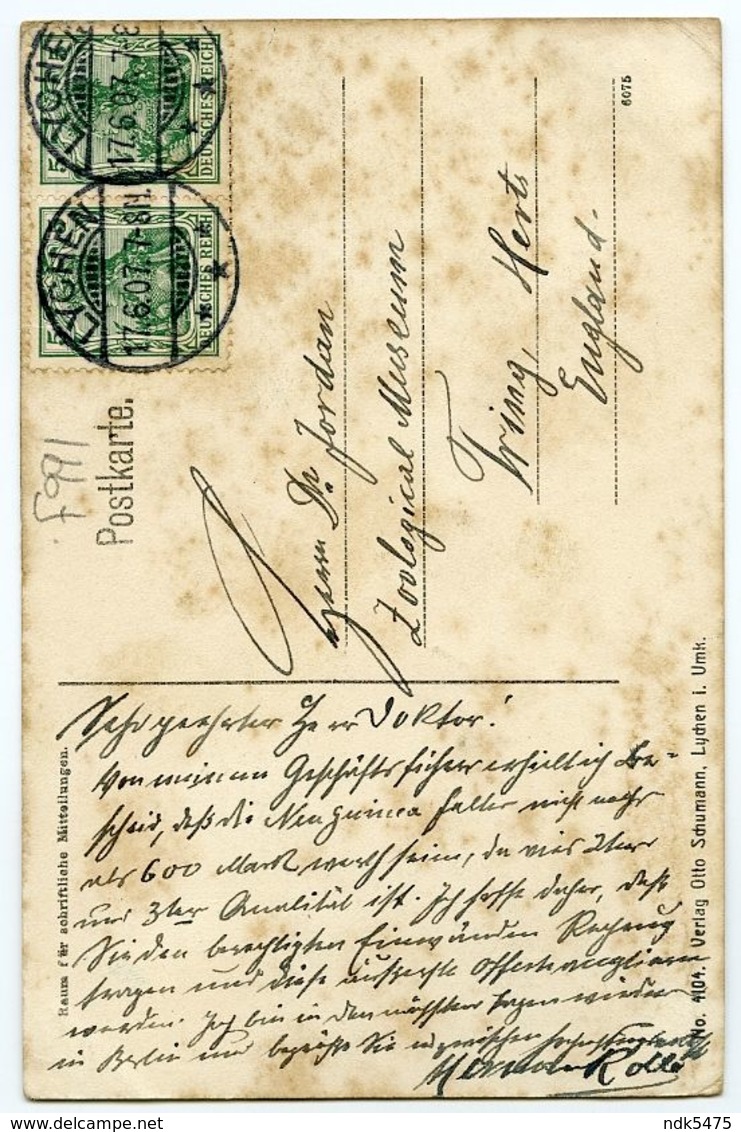 LYCHEN
17.6.07. 7-8
DEUTSCHES REICH
5
LYCHEN
17.6.07. 7-8N.
DEUTSCHES REICH
5
F991
Postkarte.
Herrn Dr. Jordan
Zoological Museum
Tring, Herts
England.
6075
Raum für schriftliche Mitteilungen.
Sehr geehrter Herr Doktor!
Von meinem Geschäftsführer erhielt ich Be-
scheid, daß die Neu Guinea Falter nicht mehr
als 600 Mark werth seien, da vies 2ter
und 3ter Qualität ist. Ich hoffe daher, daß
Sie den berechtigten Einwänden Rechnug
tragen und diese äusserste Offerte
werden. Ich bin in den nächsten Tagen wieder
in Berlin und begrüße Sie inzwischen
Hermann Rolle
No. 4104. Verlag Otto Schumann, Lychen i. Umk.
delcampe.net
ndk5475